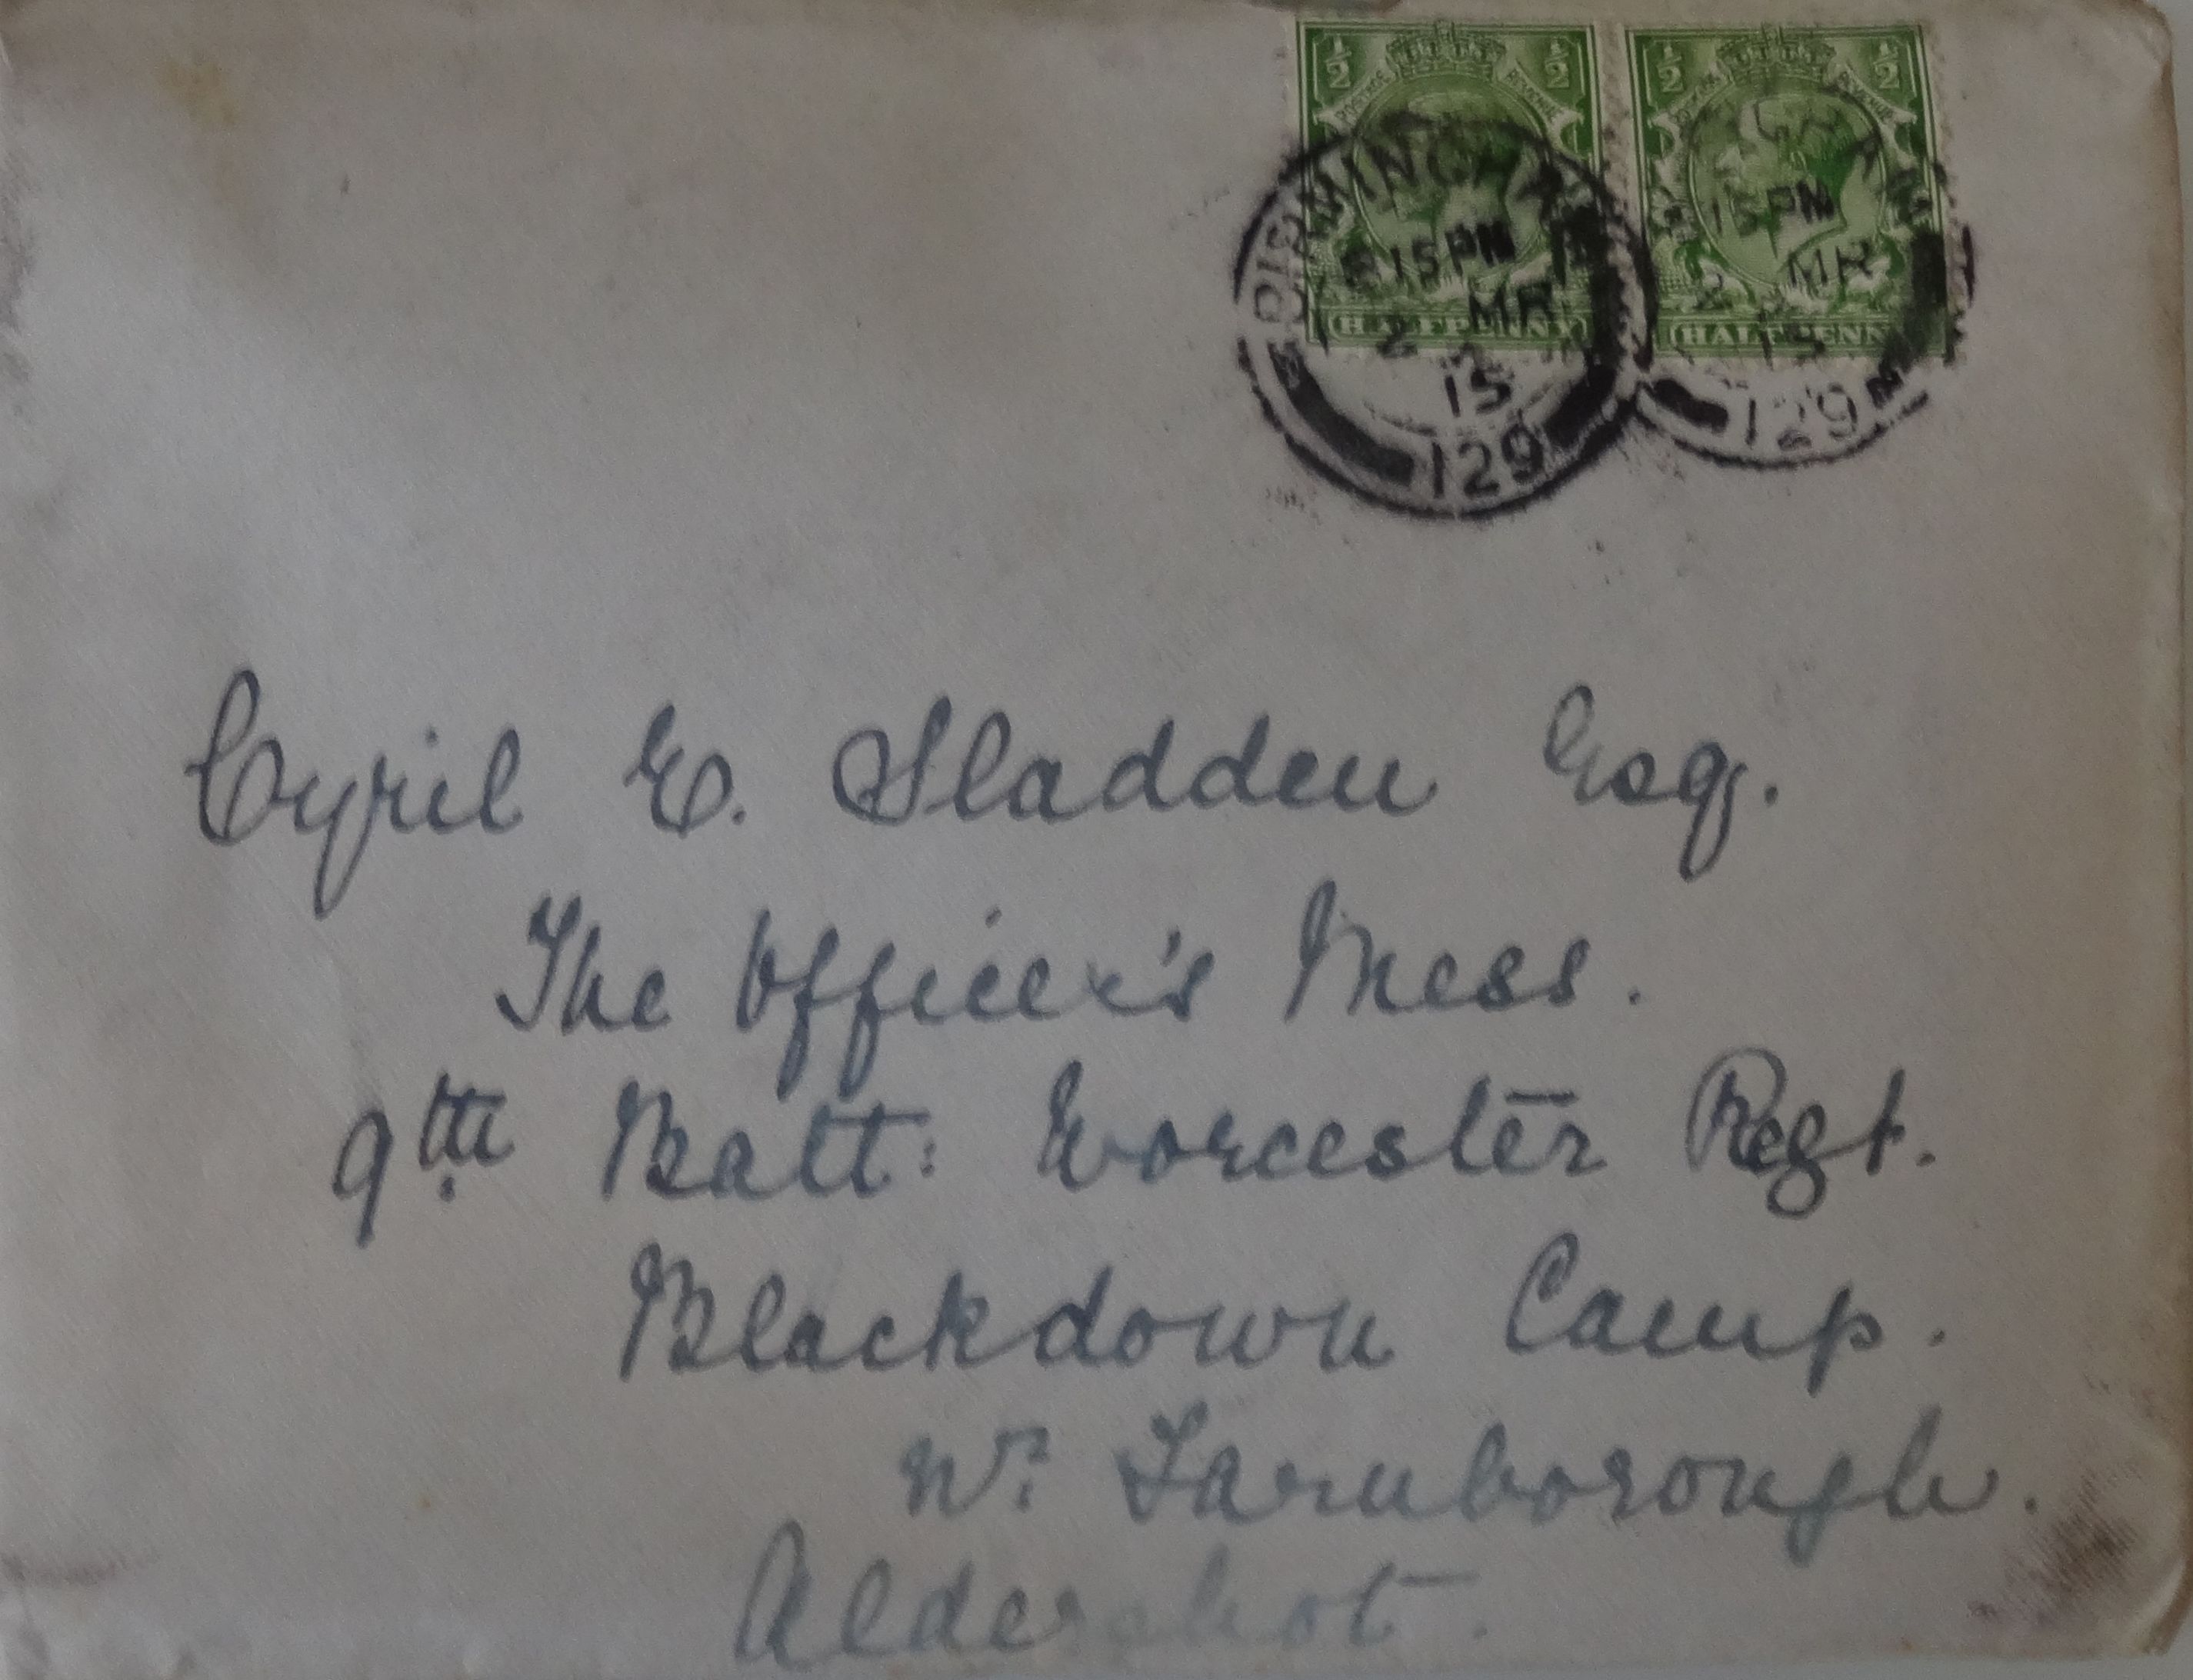 ½ ½ ½ ½
POSTAGE REVENUE POSTAGE REVENUE
HALFPENNY HALFPENNY
BIRMINGHAM
15 PM
MR
2
15
129
15 PM
MR
2
15
129
Cyril E. Sladden Esq.
The Officer's Mess.
9th Batt: Worcester Regt.
Blackdown Camp.
Nr. Farnborough.
Aldershot.